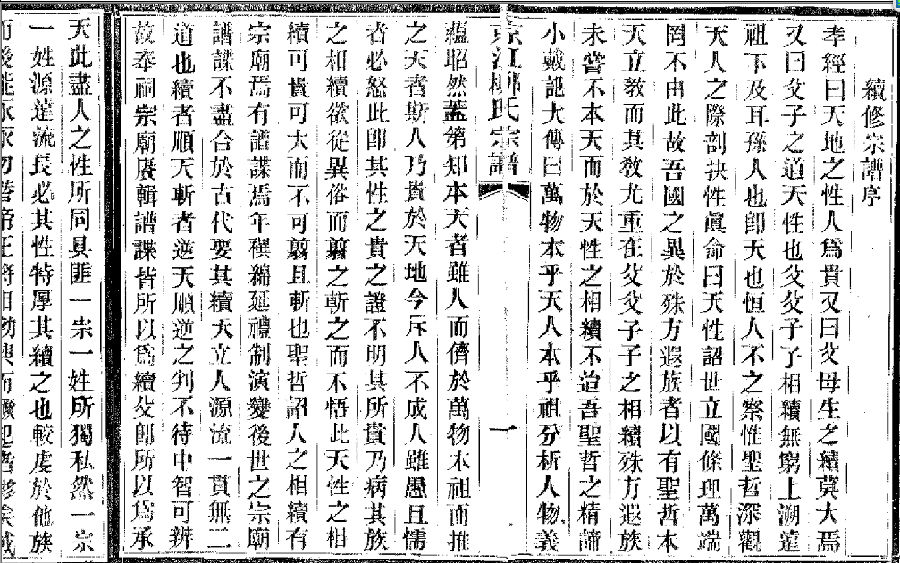 續修宗譜序
孝經曰天地之性人爲貴又曰父母生之續莫大焉
又曰父子之道天性也父父子子相續無窮上溯遠
祖下及耳孫人也卽天也恆人不之察惟聖哲深觀
天人之際剖抉性眞命曰天性詔世立國條理萬端
罔不由此故吾國之異於殊方遐族者以有聖哲本
天立教而其教尤重在父父子子之相續殊方遐族
未嘗不本天而於天性之相續不逮吾聖哲之精諦
小戴記大傳曰萬物本乎天人本乎祖分析人物義
蘊昭然蓋第知本天者雖人而儕於萬物本祖而推
之天者斯人乃貴於天地今斥人不成人雖愚且懦
者必怒此卽其性之貴之證不明其所貴乃病其族
之相續欲從異俗而翦之斬之而不悟此天性之相
續可貴可大而不可翦且斬也聖哲詔人之相續有
宗廟焉有譜諜焉年禩綿延禮制演變後世之宗廟
譜諜不盡合於古代要其續天立人源流一貫無二
道也續者順天斬者逆天順逆之判不待中智可辨
故奉祠宗廟賡輯譜諜皆所以爲續父卽所以爲承
天此盡人之性所同具匪一宗一姓所獨私然一宗
一姓源遠流長必其性特厚其續之也較虔於他族
京江柳氏宗譜
一